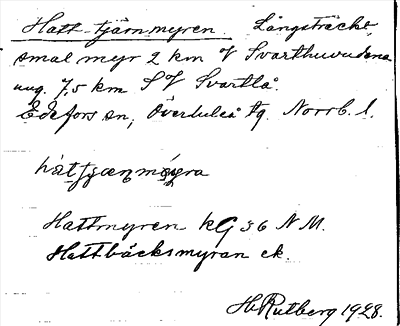 Hatt tjärnmyren. Långsträckt,
smal myr 2 km V Svarthuvudena
ung. 7,5 km SV Svartlå.
Edefors sn, Överluleå tg. Norrb. l.
Hattmyren kG 36 N M.
Hattbäcksmyran ek.
HRutberg 1928.